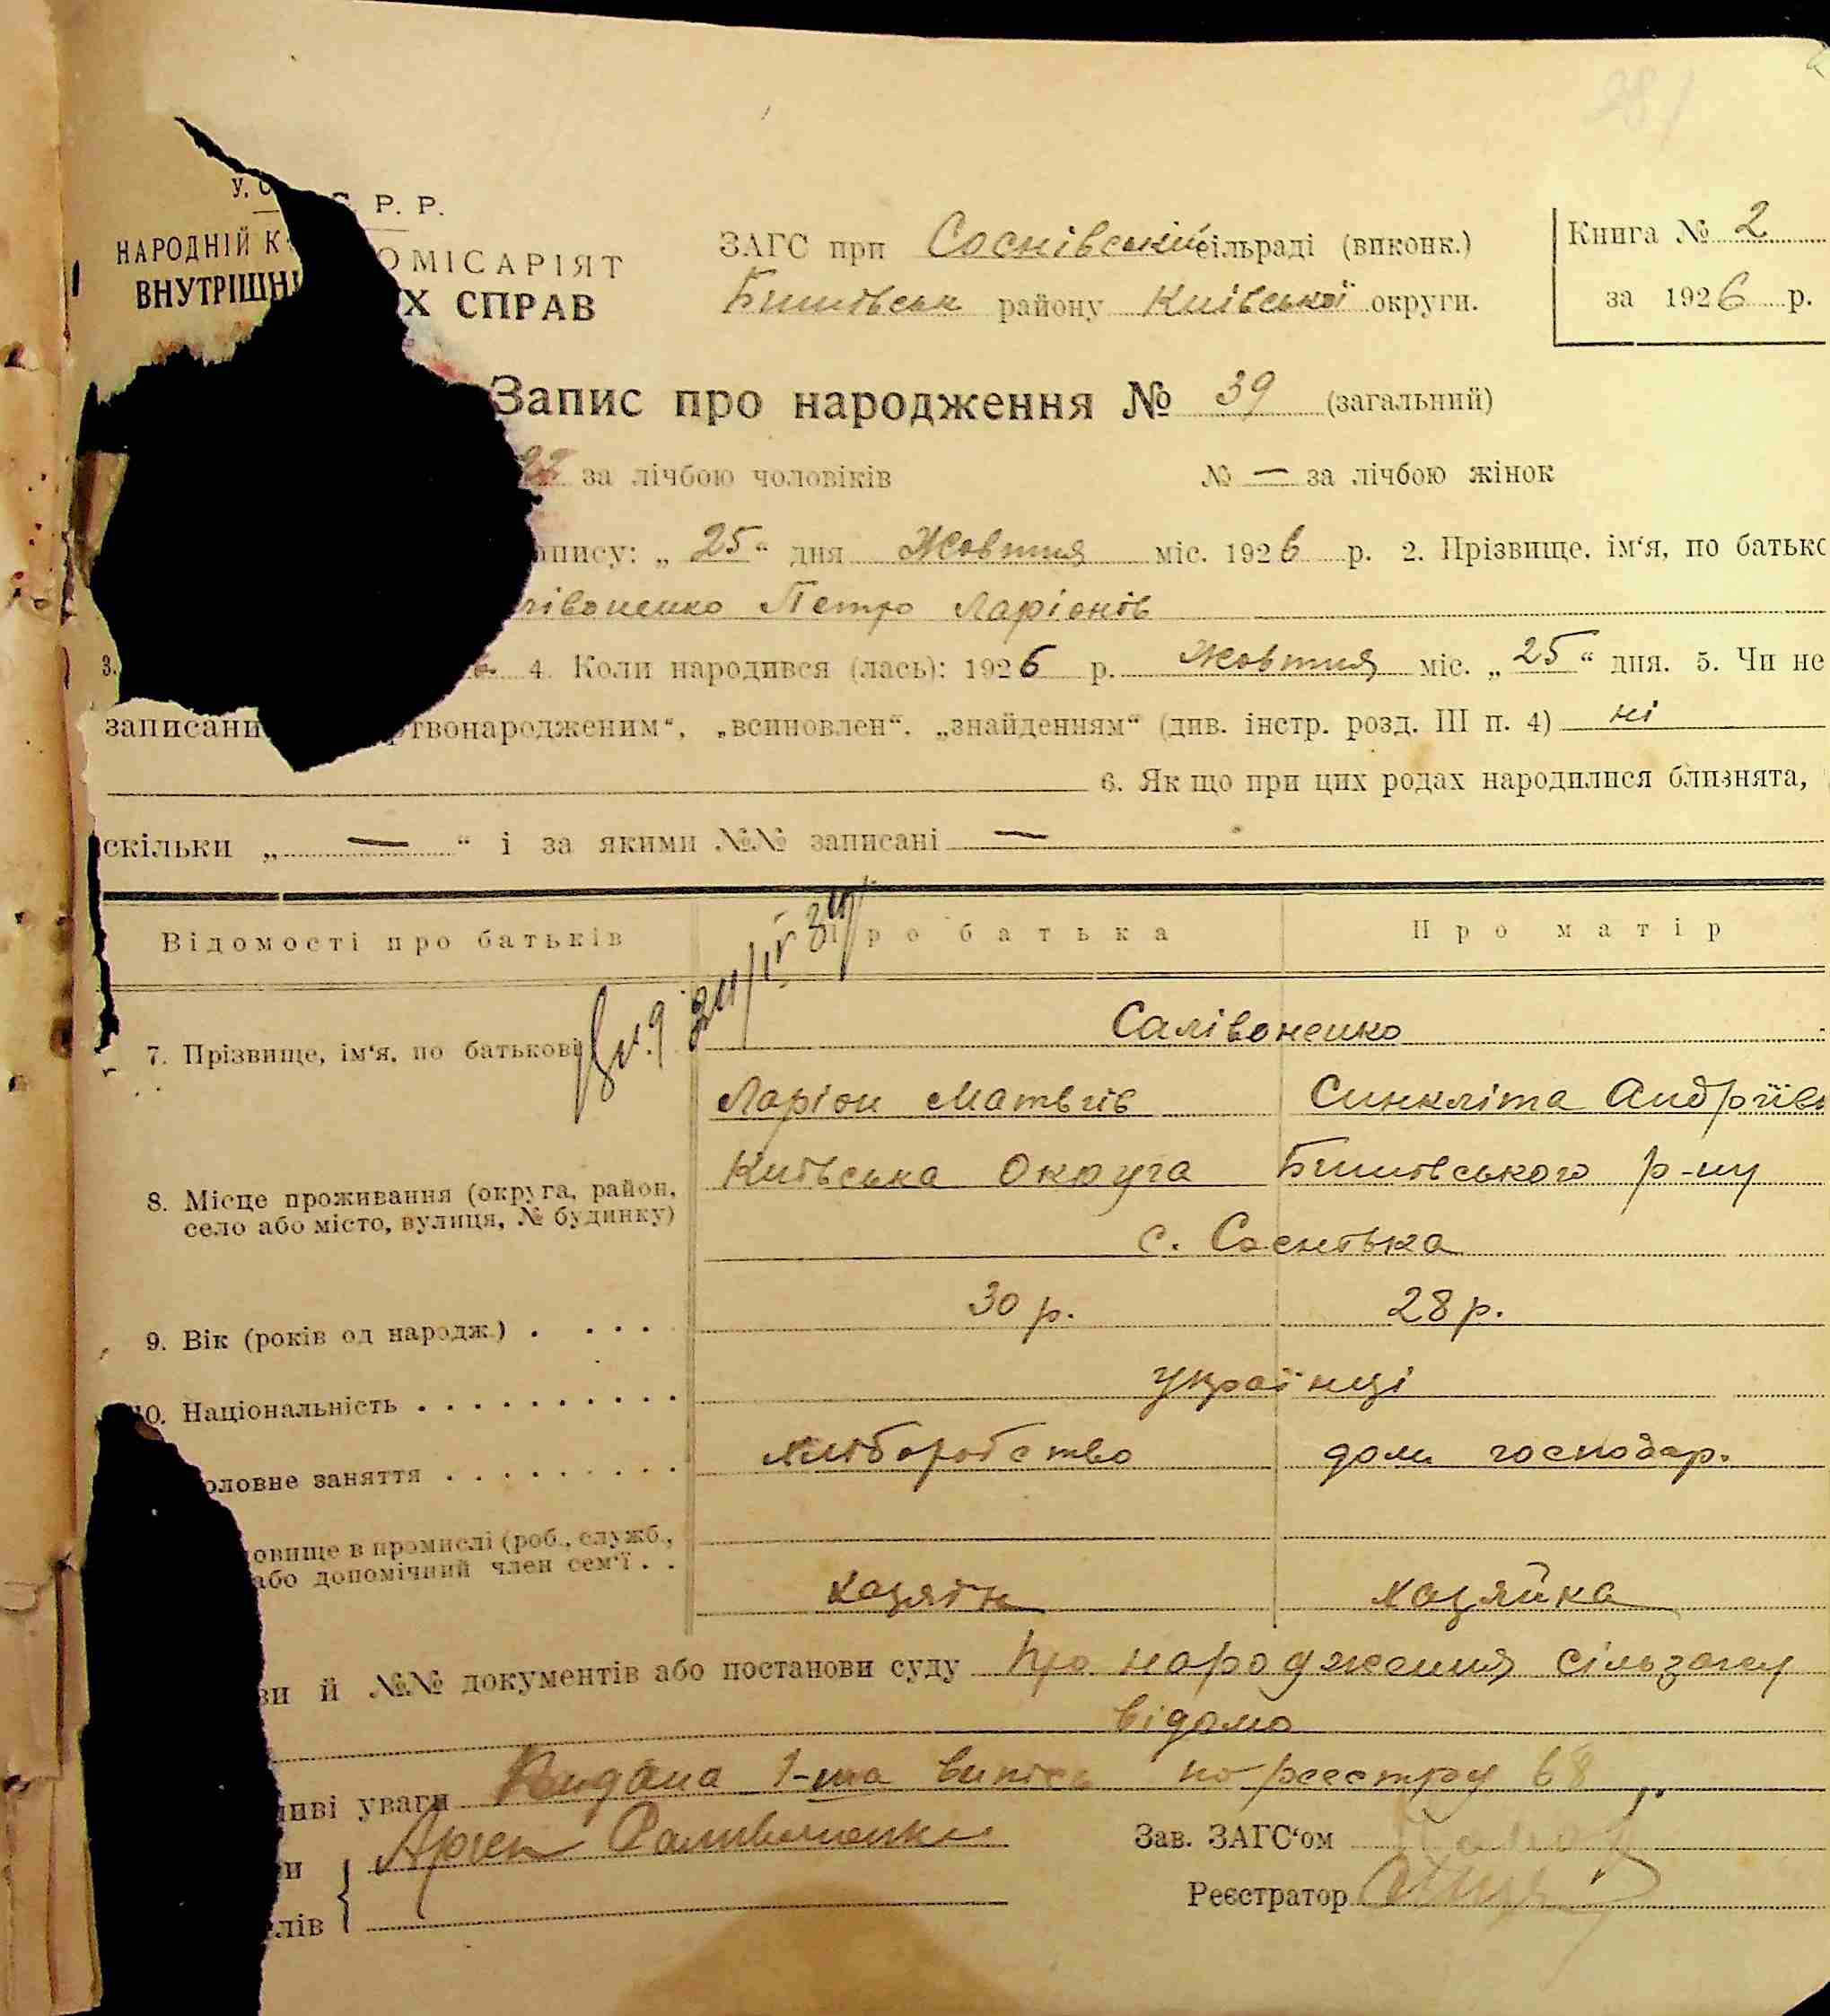 281
У. С. С. Р. Р.
НАРОДНІЙ КОМІСАРІЯТ
ВНУТРІШНІХ СПРАВ
ЗАГС при Соснівській сільраді (виконк.)
Бишівськ району Київської округи.
Книга № 2
за 1926 р.
Запис про народження № 39 (загальний)
22 за лічбою чоловіків № — за лічбою жінок
пису: „25“ дня Жовтня міс. 1926 р. 2. Прізвище, ім‘я, по батько
лівоненко Петро Ларіонів
3. 4. Коли народився (лась): 1926 р. Жовтня міс. „25“ дня. 5. Чи не
записани ртвонародженим“, „всиновлен“, „знайденням“ (див. інстр. розд. III п. 4) ні
6. Як що при цих родах народилися близнята,
скільки „ — “ і за якими №№ записані —
Відомості про батьків Про батька Про матір
7. Прізвище, ім‘я, по батькові
Салівоненко
Ларіон Матвіїв Синкліта Андріїв
8. Місце проживання (округа, район,
село або місто, вулиця, № будинку)
Київська Округа Бишівського р-ну
с. Соснівка
9. Вік (років од народж.) . . . . 30 р. 28 р.
10. Національність . . . . . . . . . . українці
оловне заняття . . . . . . . . . хліборобство дом. господар.
овище в промислі (роб., служб.,
або допомічний член сем‘ї . .
хазяїн хазяйка
ви й №№ документів або постанови суду про народження сільзагсу
відомо
ливі уваги Видана 1-ша випись по реєстру 68
и Арсен Саливоненко Зав. ЗАГС‘ом
лів Реєстратор